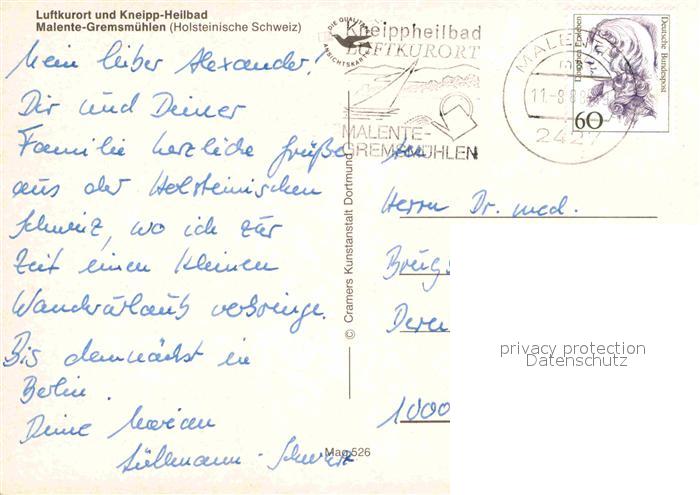 Luftkurort und Kneipp-Heilbad
Malente-Gremsmühlen (Holsteinische Schweiz)
Mein lieber Alexander!
Dir und Deiner
Familie herzliche Grüße
aus der Holsteinischen
Schweiz, wo ich zur
Zeit einen kleinen
Wanderurlaub verbringe.
Bis demnächst in
Berlin.
Deine Marian
Süllmann-
© Cramers Kunstanstalt Dortmund
Mag 526
DIE QUALITÄTS
ANSICHTSKARTE
Kneippheilbad
LUFTKURORT
MALENTE-
GREMSMÜHLEN
MALENTE
11.-8.88
2427
Deutsche Bundespost
60
An
Herrn Dr. med.
1000
privacy protection
Datenschutz